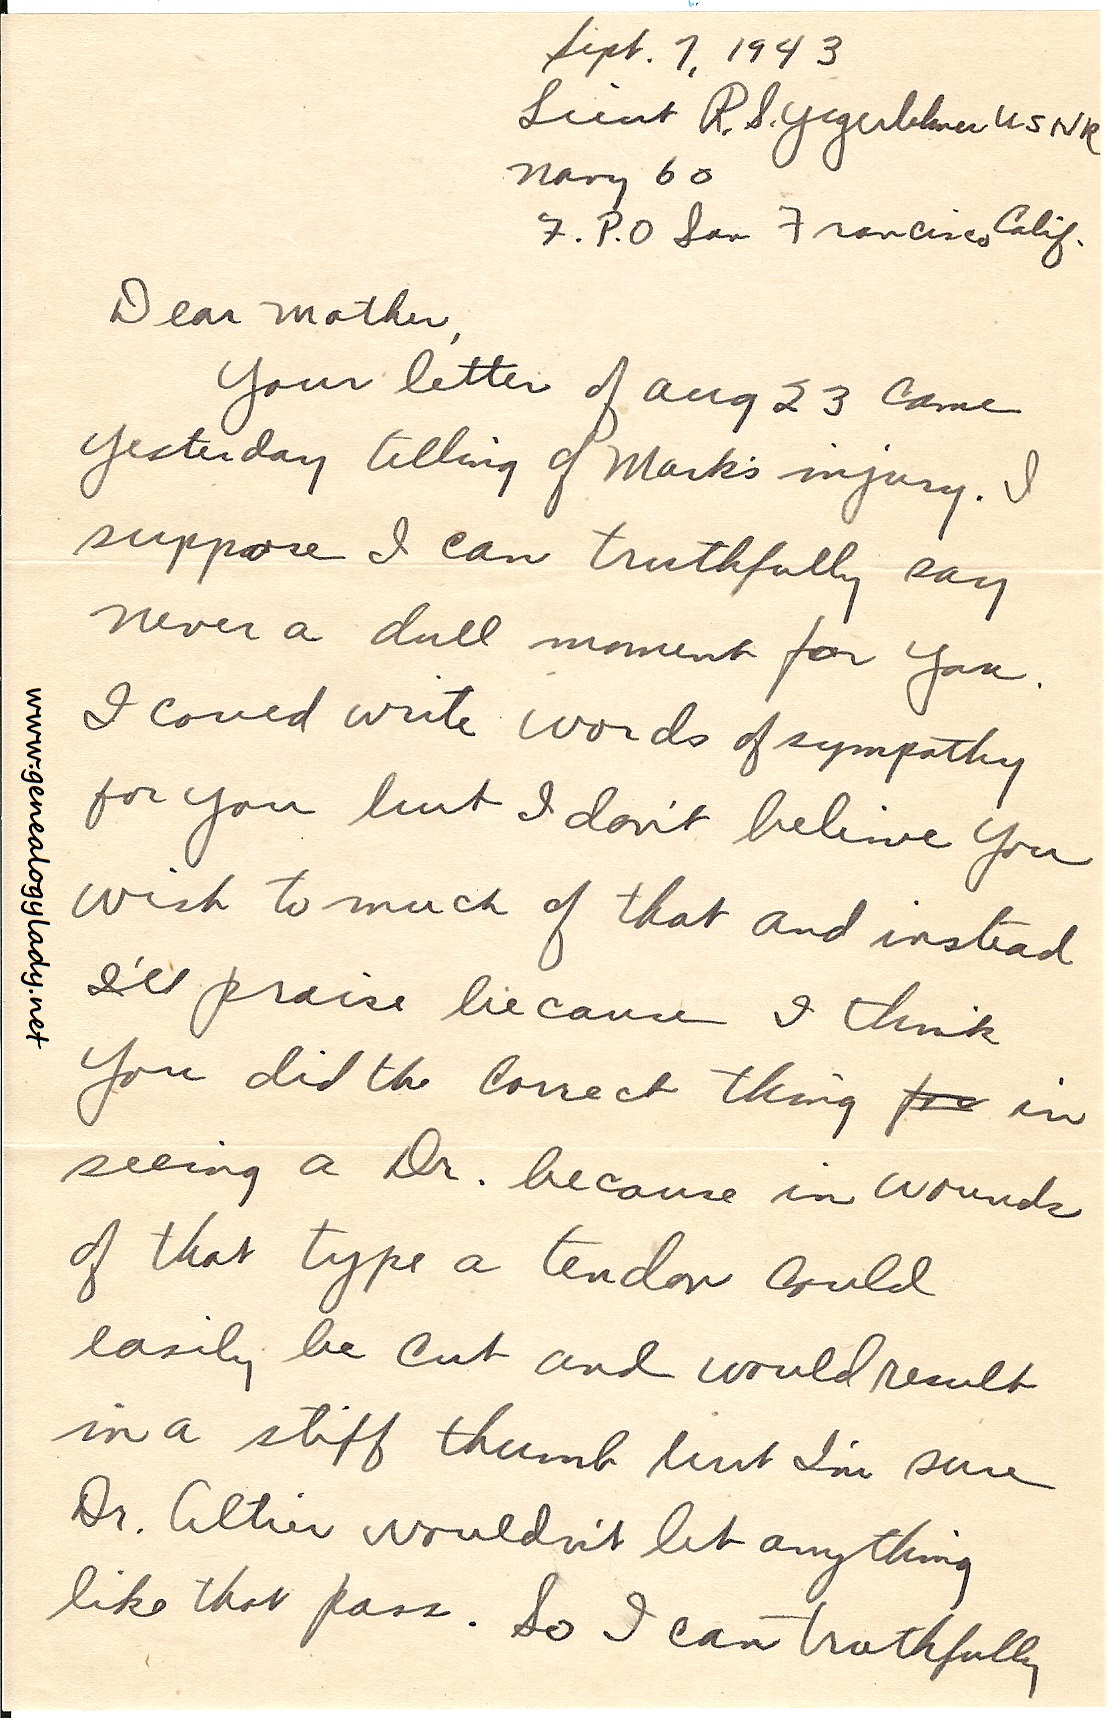 Sept. 7, 1943
Lieut R. S. Yegerlehner USNR
Navy 60
F. P. O San Francisco Calif.
Dear Mother,
Your letter of Aug 23 came
yesterday telling of Mark's injury. I
suppose I can truthfully say
never a dull moment for you.
I could write words of sympathy
for you but I don't believe you
wish to much of that and instead
I'll praise because I think
you did the correct thing for in
seeing a Dr. because in wounds
of that type a tendon could
easily be cut and would result
in a stiff thumb but I'm sure
Dr. Altier wouldn't let anything
like that pass. So I can truthfully
www.genealogylady.net